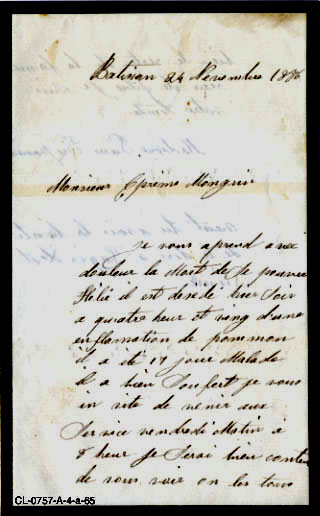 Batiscan 24 Novembre 1886
Monsieur Ephrème Monguin
je vous aprend avec
douleur la Mort de se pauvre
Hélié il est desedé hier Soir
a quatre heur et ving d'une
enflamation de poommon
il a eté 17 jour Malade
il a bien Soufert je vous
in vite de venir aux
Service vendredi Matin a
8 heur je Serai bien conten
de vous voir on les tous
CL-0757-A-4-a-65